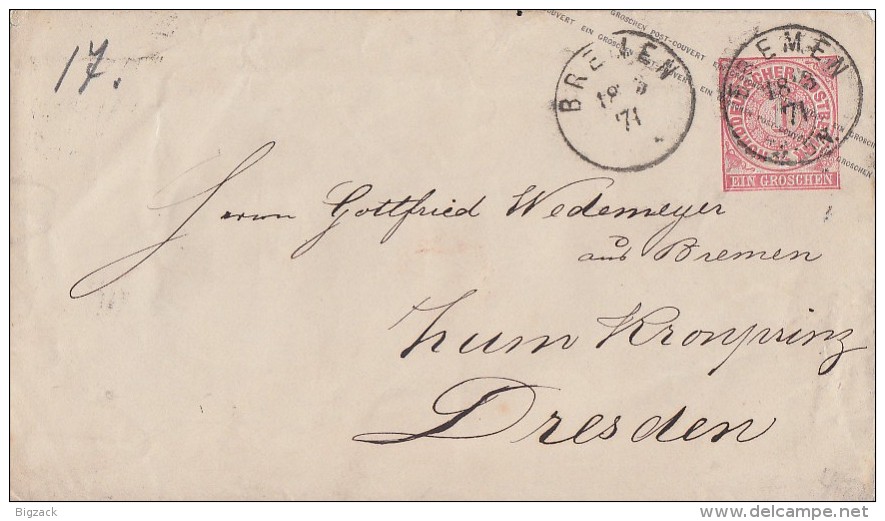 GROSCHEN POST-COUVERT EIN GROSCHEN
17.
BREMEN
18 5
71
BREMEN
18 5
71
NORDDEUTSCHER POSTBEZIRK
EIN GROSCHEN
Herrn Gottfried Wedemeyer
aus Bremen
zum Kronprinz
Dresden
Bigzack
www.delcampe.net